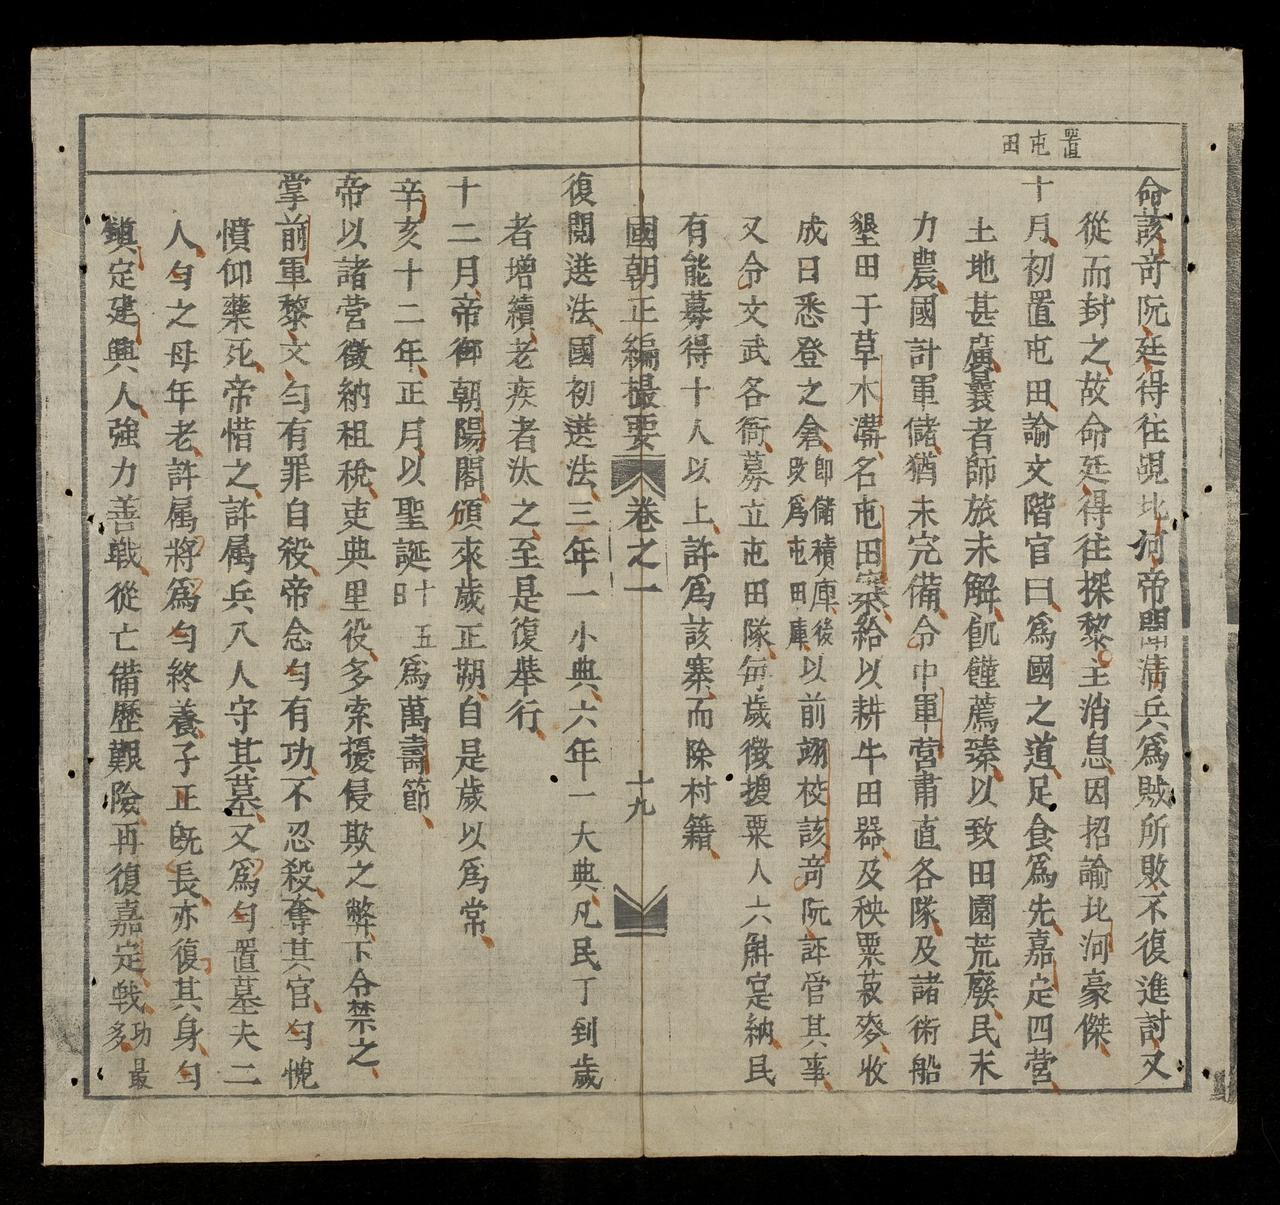 置屯田
命該奇阮廷得往覘北河帝聞清兵爲賊所敗不復進討又
從而封之故命廷得往探黎主消息因招諭北河豪傑
十月初置屯田諭文階官曰爲國之道足食爲先嘉定四營
土地甚廣曩者師旅未解飢饉薦臻以致田園荒廢民未
力農國計軍儲猶未完備令中軍營肅直各隊及諸衙船
墾田于草木溝名屯田寨給以耕牛田器及秧粟菽麥收
成日悉登之倉卽儲積庫後改爲屯田庫以前翊校該奇阮評管其事
又令文武各衙募立屯田隊每歲徵搜粟人六斛寔納民
有能募得十人以上許爲該寨而除村籍
國朝正編撮要 卷之一 十九
復閱選法國初選法三年一小典六年一大典凡民丁到歲
者增續老疾者汰之至是復舉行
十二月帝御朝陽閣頒來歲正朔自是歲以爲常
辛亥十二年正月以聖誕十五日爲萬壽節
帝以諸營徵納租稅吏典里役多索擾侵欺之弊下令禁之
掌前軍黎文勻有罪自殺帝念勻有功不忍殺奪其官勻愧
憤仰藥死帝惜之許属兵八人守其墓又爲勻置墓夫二
人勻之母年老許属將爲勻終養子正旣長亦復其身勻
鎮定建興人強力善戰從亡備歷艱險再復嘉定戰功最多